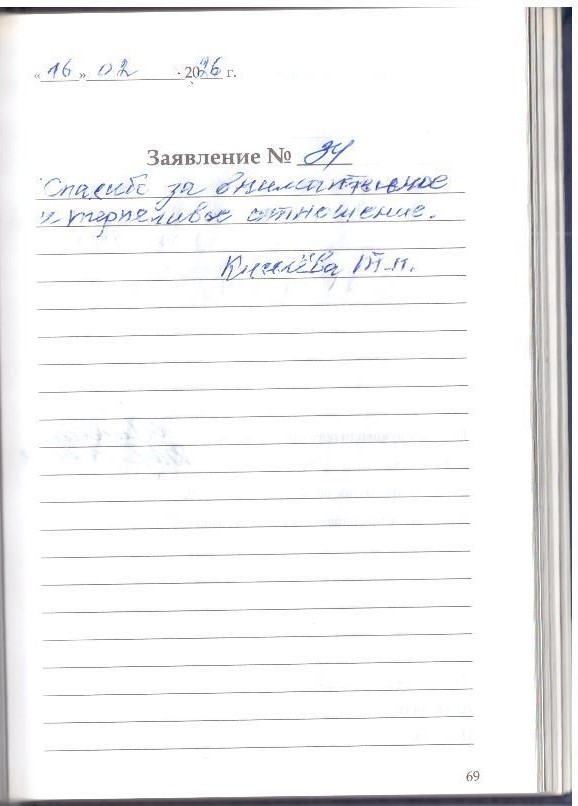 «16» 02 2026 г.
Заявление № 34
Спасибо за внимательное
и терпеливое отношение.
Киселёва Т.П.
69